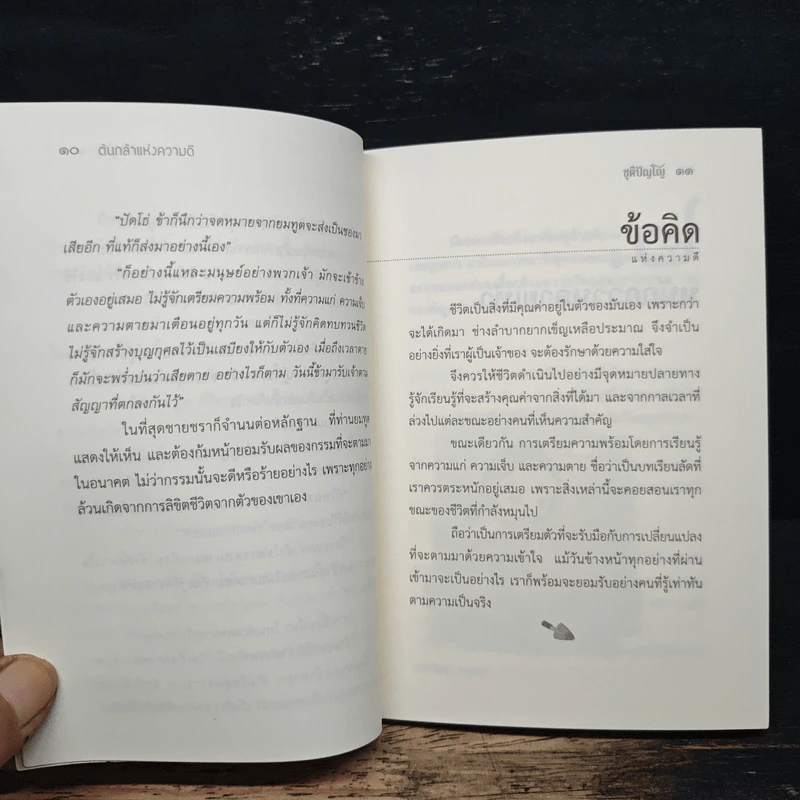 ๑๐ ต้นกล้าแห่งความดี
"ปัดโธ่ ข้าก็นึกว่าจดหมายจากยมทูตจะส่งเป็นซองมา
เสียอีก ที่แท้ก็ส่งมาอย่างนี้เอง"
"ก็อย่างนี้แหละมนุษย์อย่างพวกเจ้า มักจะเข้าข้าง
ตัวเองอยู่เสมอ ไม่รู้จักเตรียมความพร้อม ทั้งที่ความแก่ ความเจ็บ
และความตายมาเตือนอยู่ทุกวัน แต่ก็ไม่รู้จักคิดทบทวนชีวิต
ไม่รู้จักสร้างบุญกุศลไว้เป็นเสบียงให้กับตัวเอง เมื่อถึงเวลาตาย
ก็มักจะพร่ำบ่นว่าเสียดาย อย่างไรก็ตาม วันนี้ข้ามารับเจ้าตาม
สัญญาที่ตกลงกันไว้"
ในที่สุดชายชราก็จำนนต่อหลักฐาน ที่ท่านยมทูต
แสดงให้เห็น และต้องก้มหน้ายอมรับผลของกรรมที่จะตามมา
ในอนาคต ไม่ว่ากรรมนั้นจะดีหรือร้ายอย่างไร เพราะทุกอย่าง
ล้วนเกิดจากการลิขิตชีวิตจากตัวของเขาเอง
ชุติปัญโญ ๑๑
ข้อคิด
แห่งความดี
ชีวิตเป็นสิ่งที่มีคุณค่าอยู่ในตัวของมันเอง เพราะกว่า
จะได้เกิดมา ช่างลำบากยากเข็ญเหลือประมาณ จึงจำเป็น
อย่างยิ่งที่เราผู้เป็นเจ้าของ จะต้องรักษาด้วยความใส่ใจ
จึงควรให้ชีวิตดำเนินไปอย่างมีจุดหมายปลายทาง
รู้จักเรียนรู้ที่จะสร้างคุณค่าจากสิ่งที่ได้มา และจากกาลเวลาที่
ล่วงไปแต่ละขณะอย่างคนที่เห็นความสำคัญ
ขณะเดียวกัน การเตรียมความพร้อมโดยการเรียนรู้
จากความแก่ ความเจ็บ และความตาย ชื่อว่าเป็นบทเรียนลัดที่
เราควรตระหนักอยู่เสมอ เพราะสิ่งเหล่านี้จะคอยสอนเราทุก
ขณะของชีวิตที่กำลังหมุนไป
ถือว่าเป็นการเตรียมตัวที่จะรับมือกับการเปลี่ยนแปลง
ที่จะตามมาด้วยความเข้าใจ แม้วันข้างหน้าทุกอย่างที่ผ่าน
เข้ามาจะเป็นอย่างไร เราก็พร้อมจะยอมรับอย่างคนที่รู้เท่าทัน
ตามความเป็นจริง